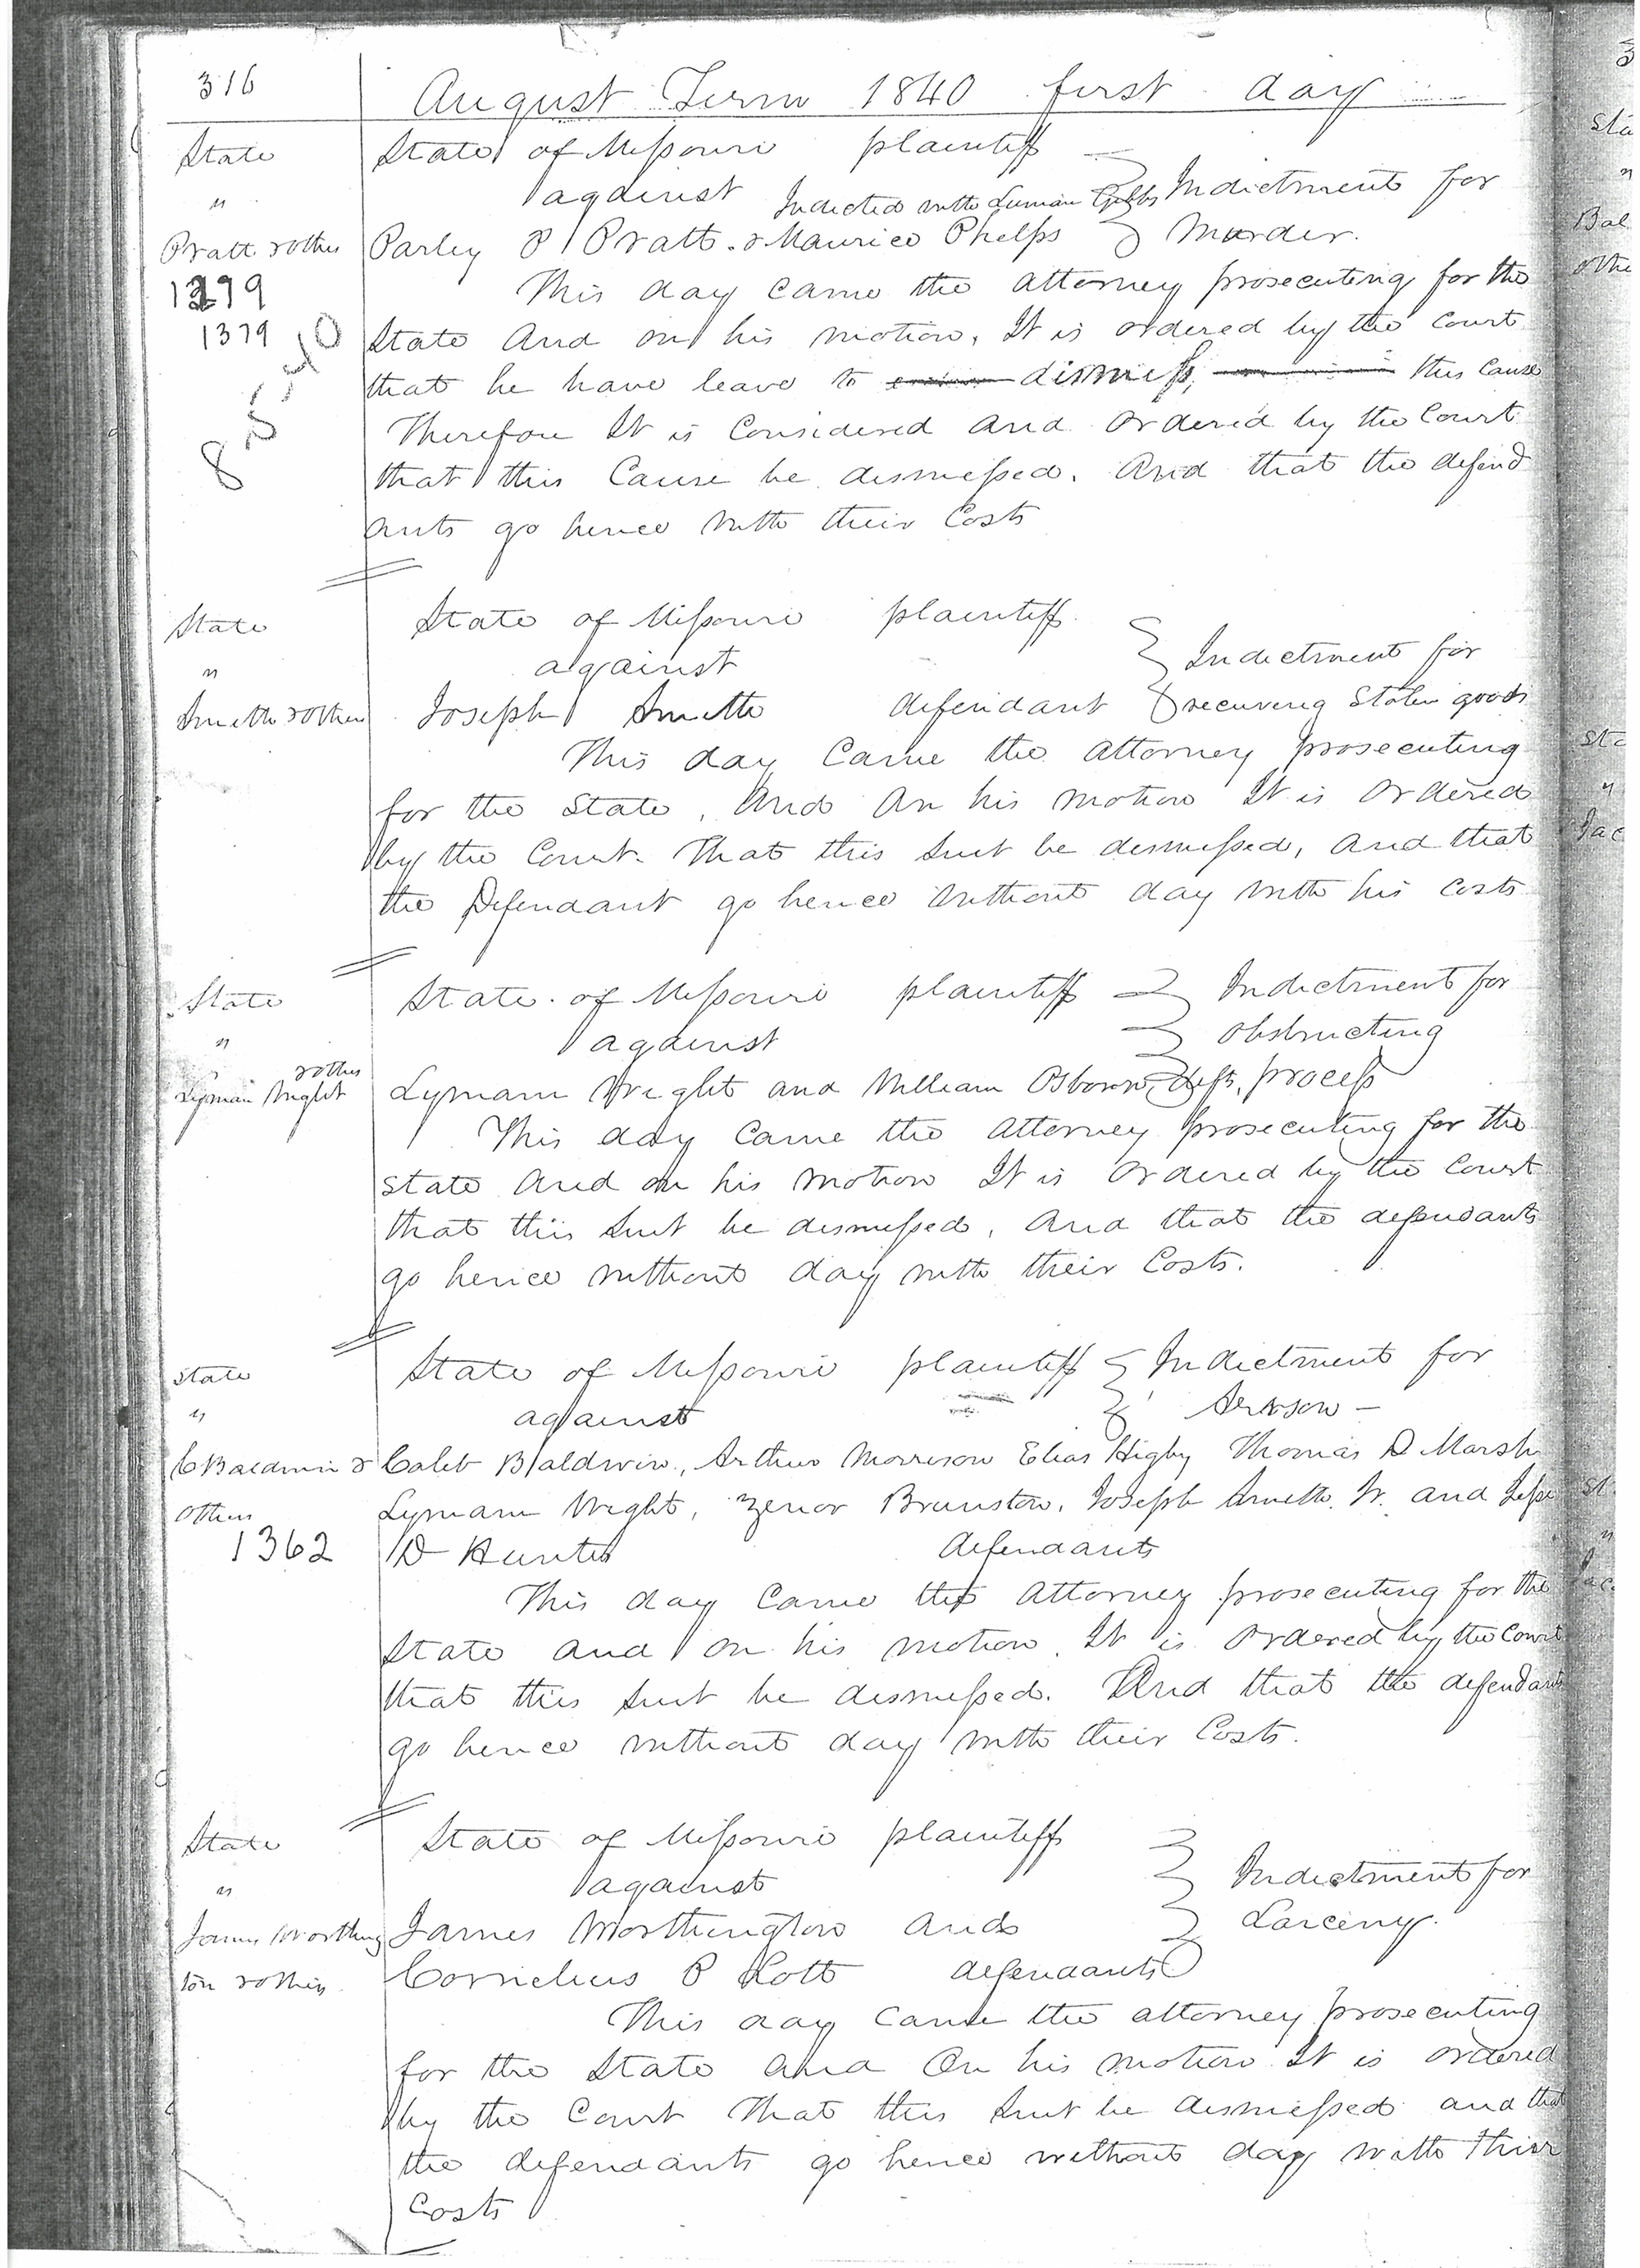 316
August Term 1840 first day
State
"
Pratt & others
1379
State of Missouri plaintiff
against Indicted with Luman Gibbs Indictment for
Parley P Pratt & Maurice Phelps Murder.
This day came the attorney prosecuting for the
State And on his motion, It is ordered by the Court
that he have leave to dismiss, this Cause
Therefore It is Considered and ordered by the Court
that this Cause be dismissed. And that the defend
ants go hence with their Costs
State
"
Smith & others
State of Missouri plaintiff
against Indictment for
Joseph Smith defendant receiving Stolen goods
This day Came the attorney prosecuting
for the State, And on his motion It is Ordered
by the Court. That this Suit be dismissed, and that
the Defendant go hence without day with his Costs
State
"
& others
Lyman Wright
State of Missouri plaintiff Indictment for
against obstructing
Lyman Wright and William Osborn, defts, process
This day Came the attorney prosecuting for the
State and on his motion It is Ordered by the Court
that this Suit be dismissed, and that the defendants
go hence without day with their Costs.
State
"
C Baldwin &
others
1362
State of Missouri plaintiff Indictment for
against Arson -
Caleb Baldwin, Arthur Morrison Elias Higby Thomas D Marsh
Lyman Wright, Zenor Brunston, Joseph Smith Jr. and Jesse
D Hunter defendants
This day Came the attorney prosecuting for the
State and on his motion. It is Ordered by the Court
that this Suit be dismissed. And that the defendants
go hence without day with their Costs.
State
"
James Worthing
ton & others
State of Missouri plaintiff
against Indictment for
James Worthington and Larceny.
Cornelius P Lott defendants
This day came the attorney prosecuting
for the State and On his motion It is ordered
by the Court That this Suit be dismissed and that
the defendants go hence without day with their
Costs